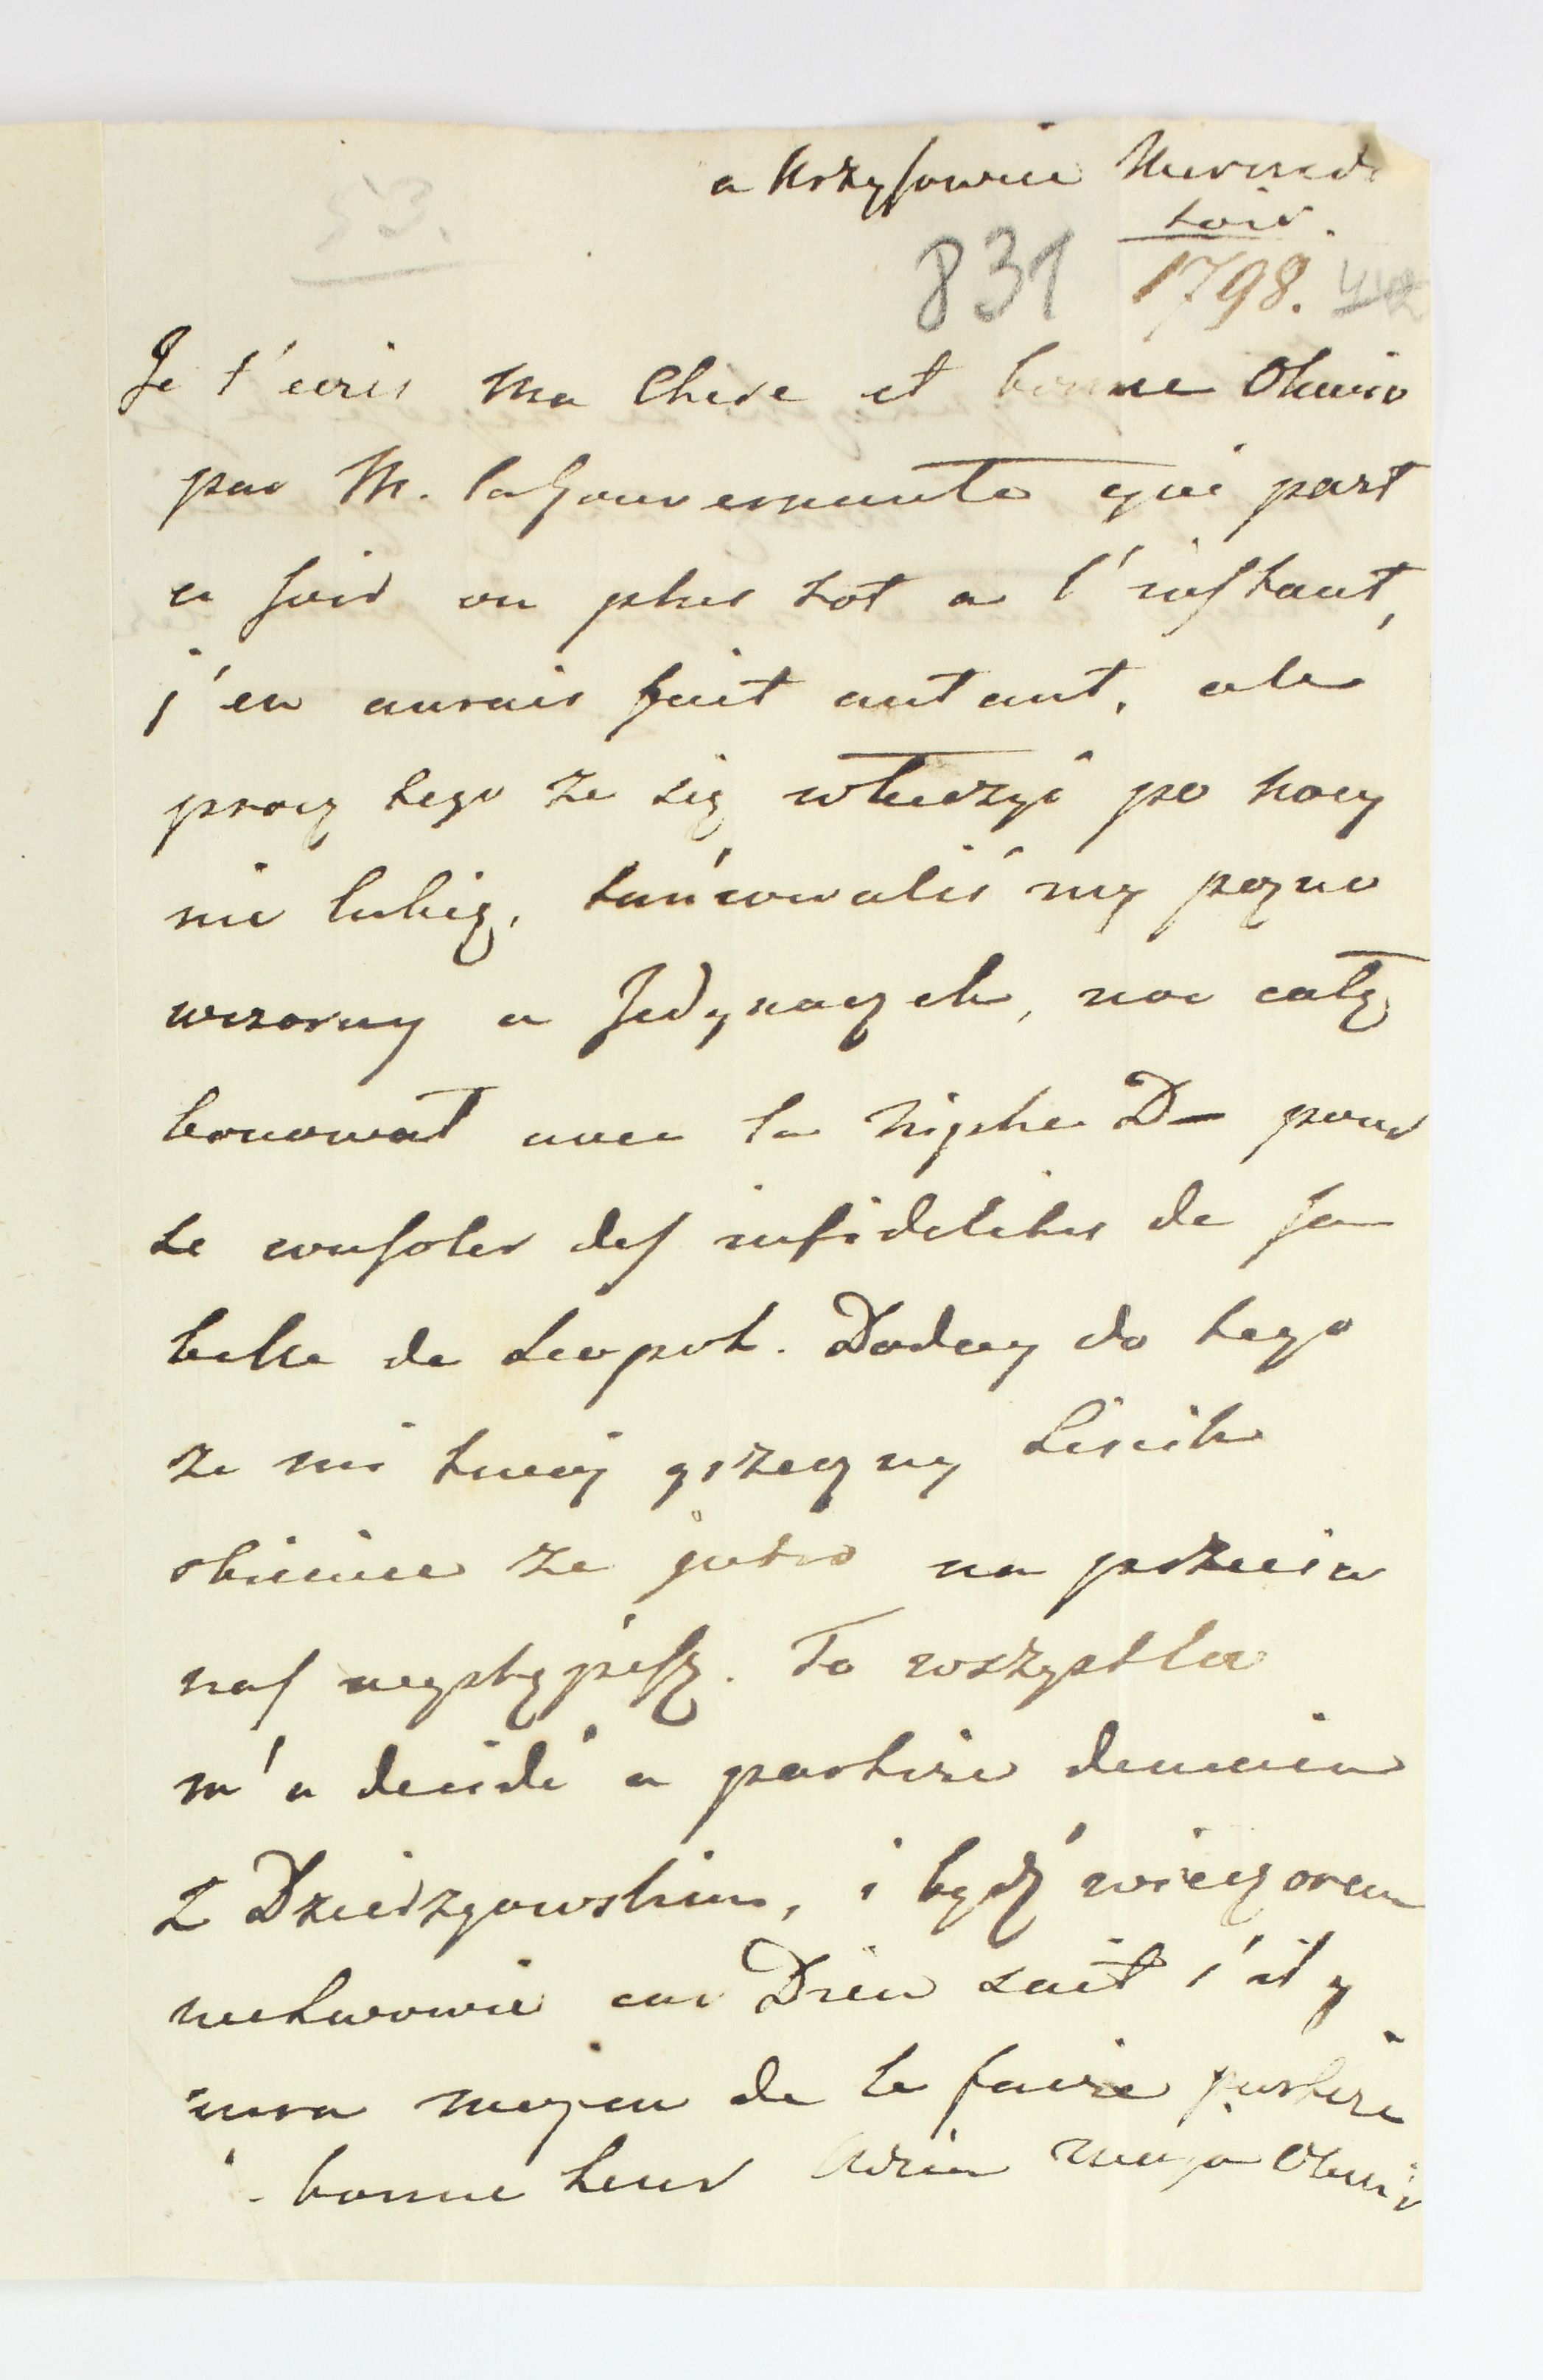 53.
a Krzysowice Mercredi
soir.
831 1798.
Je t'ecris Ma Chere et bonne Olesio
par M. la Gouvernante qui part
ce soir ou plus tot a l'instant,
j'en aurais fait autant, ale
procz tego ze się włuczyć po nocy
nie lubię, tańcowaliśmy pozno
wczoray a Jedynaczek, noc całę
bonował avec la Niphe D— pour
se consoler des infidelites de sa
belle de Leopol. Daday do tego
ze mi twoy grzeczny Lisick
obiecuie ze jutro na przeciw
nas wystąpisz. To wszystko
m'a decidé a partire demain
z Dzierzgowskim, i bydź wieczorem
we Lwowie car Dieu sait s'il y
aura moyen de le faire partire
a bonne heur Adieu moja Olesio